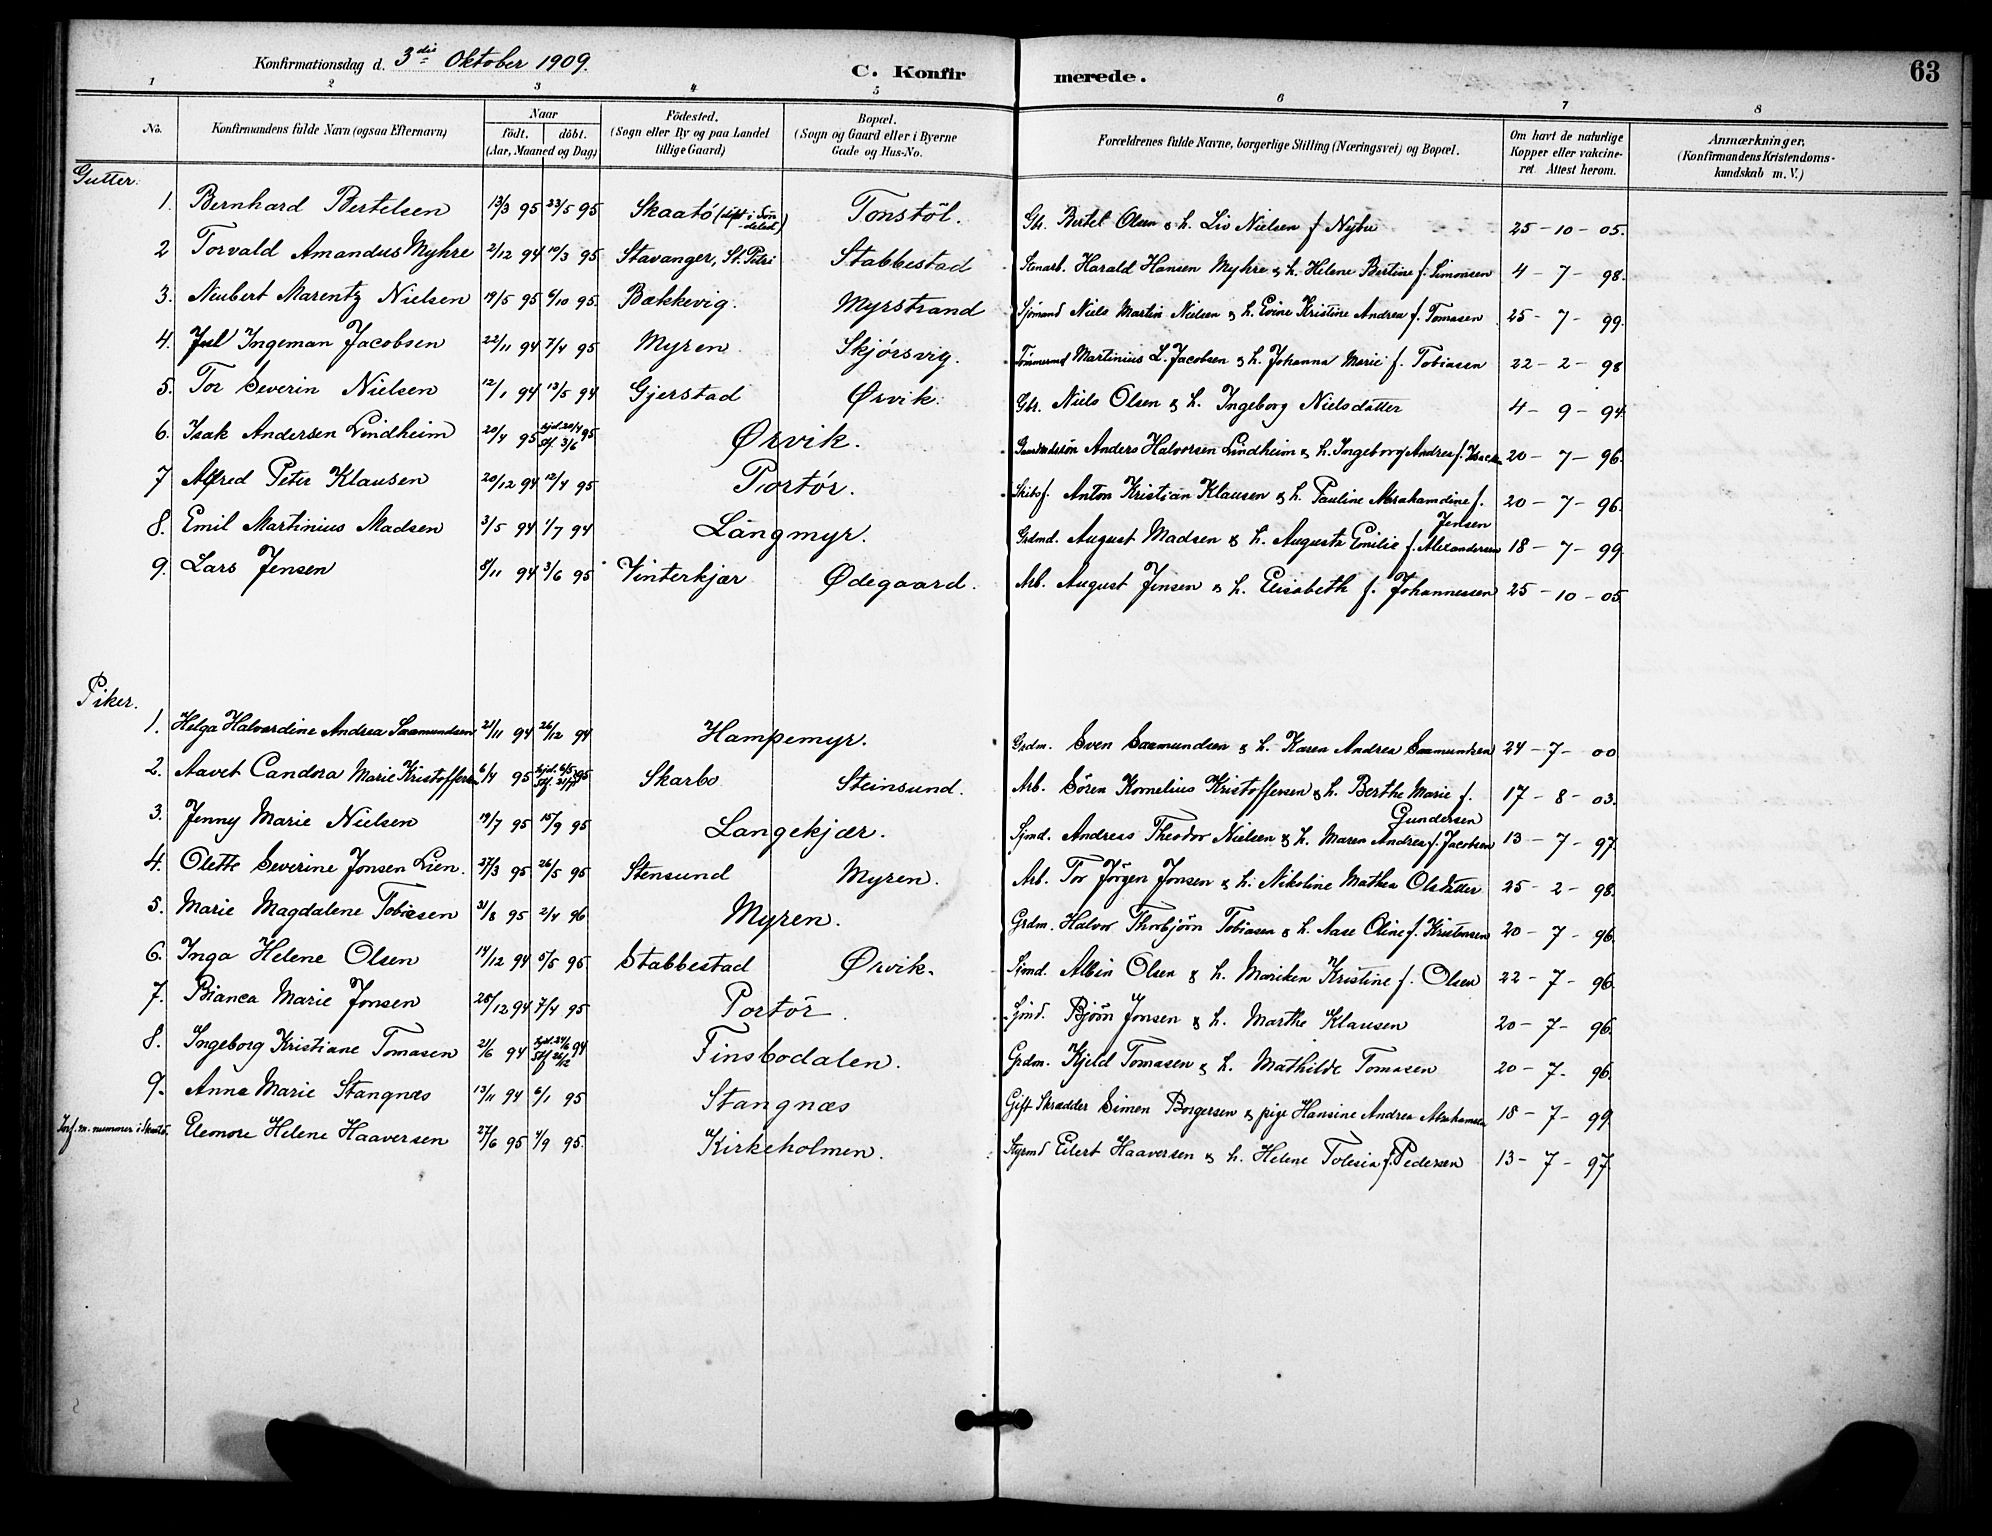 Konfirmationsdag d. 3die Oktober 1909.
C. Konfirmerede.
63
1 2 3 4 5 6 7 8
No. Konfirmandens fulde Navn (ogsaa Efternavn) Naar født. døbt. (Aar, Maaned og Dag) Födested. (Sogn eller By og paa Landet tillige Gaard) Bopæl. (Sogn og Gaard eller i Byerne Gade og Hus-No. Forældrenes fulde Navne, borgerlige Stilling (Næringsvei) og Bopæl. Om havt de naturlige Kopper eller vakcineret. Attest herom. Anmærkninger, (Konfirmandens Kristendomskundskab m. V.)
Gutter.
1. Bernhard Bertelsen 13/3 95 23/5 95 Skaatö (döpt i Söndeled) Tonstöl. Gbr. Bertel Olsen & h. Liv Nielsen f Nybu 25-10-05.
2 Torvald Amandus Myhre 2/12 94 10/3 95 Stavanger, St. Petri Stabbestad Stenarb. Harald Hansen Myhre & h. Helene Bertine f. Simonsen 4-7-98.
3. Neubert Marentz Nielsen 19/5 95 6/10 95. Bækkevig. Myrstrand Sjömand Niels Martin Nielsen & h. Evine Kristine Andrea f. Tomasen 25-7-99.
4. Juel Ingeman Jacobsen 22/11 94 7/4 95 Myren Skjörsvig. Tömmermd Martinius L. Jacobsen & h. Johanna Marie f. Tobiasen 22-2-98
5. Tor Severin Nielsen 12/1 94 13/5 94 Gjerstad Ørvik. Gbr. Niels Olsen & h. Ingeborg Nielsdatter 4-9-94.
6. Isak Andersen Lindheim 20/4 95 hjd. 20/4 Stf. 3/6 95 Ørvik. Anders Halvorsen Lindheim & h. Ingeborg Andrea f. Isacksen 20-7-96.
7 Alfred Peter Klausen 20/12 94 12/4 95 Portör. Skibsf. Anton Kristian Klausen & h. Pauline Abrahamdine f. Jensen 20-7-96.
8. Emil Martinius Madsen 3/5 94 1/7 94 Langmyr. Grdmd. August Madsen & h. Augusta Emilie f. Alexandersen 18-7-99.
9. Lars Jensen 8/11 94 3/6 95 Vinterkjær Ødegaard. Arb. August Jensen & h. Elisabeth f. Johannessen 25-10-05
Piker.
1. Helga Halvardine Andrea Saamundsen 21/11 94 26/12 94 Hampemyr. Grdm. Sven Saamundsen & h. Karen Andrea Saamundsen 24-7-00
2. Aavet Candora Marie Kristoffersen 6/4 95 hjd. 6/5 Stf. 21/7 95 Skarbo Steinsund. Arb. Sören Kornelius Kristoffersen & h. Berthe Marie f. Gundersen 17-8-03.
3. Jenny Marie Nielsen 19/7 95 15/9 95 Langekjær. Sjmd. Andreas Theodor Nielsen & h. Maren Andrea f. Jacobsen 13-7-97.
4. Olette Severine Jonsen Lien. 27/3 95 26/5 95 Stensund Myren. Arb. Tor Jörgen Jonsen & h. Nikoline Mathea Olsdatter 25-2-98.
5. Marie Magdalene Tobiasen 31/8 95 2/4 96 Myren. Grdm. Halvor Thorbjörn Tobiasen & h. Aase Oline f. Kristensen 20-7-96.
6. Inga Helene Olsen 14/12 94 5/5 95 Stabbestad Ørvik. Sjmd. Albin Olsen & h. Mariken Kristine f. Olsen 22-7-96.
7. Bianca Marie Jonsen 25/12 94 7/4 95 Portör. Sjmd. Björn Jonsen & h. Marthe Klausen 20-7-96.
8. Ingeborg Kristiane Tomasen 21/6 94 hjd. 24/6 Stf 26/12 94 Finsbodalen. Grdm. Kjeld Tomasen & h. Mathilde Tomasen 20-7-96.
9. Anna Marie Stangnæs 13/11 94 6/1 95 Stangnæs Gift Skrædder Simen Borgersen & pige Hansine Andrea Abrahamsen 18-7-99.
m. nummer i Skaatö. Eleonore Helene Haaversen 27/6 95 1/9 95. Kirkeholmen. Styrmd Eilert Haaversen & h. Helene Tolesia f. Pedersen 13-7-97.